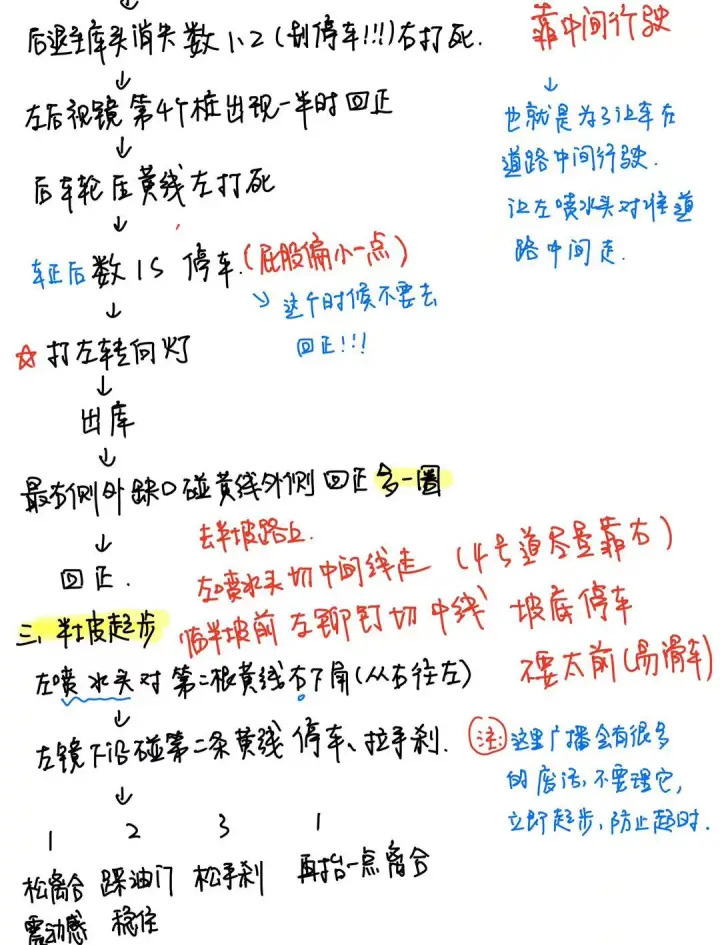 后退至库头消失数1、2(刻停车!!!)右打死.
靠中间行驶
左后视镜第4个桩出现一半时回正
也就是为了让车在
道路中间行驶.
让左喷水头对准道
路中间走.
后车轮压黄线左打死
车正后数1S停车.(屁股偏小一点)
这个时候不要去
回正!!!
☆打左转向灯
出库
最右侧外缺口碰黄线外侧回正多一圈
回正.
去半坡路上.
左喷水头切中间线走(4号道尽量靠右)
三、半坡起步
临半坡前左铆钉切中线 坡底停车
不要太前(易滑车)
左喷水头对第二根黄线右下角(从右往左)
左镜下沿碰第二条黄线停车、拉手刹.
注:这里广播会有很多
的废话,不要理它,
立即起步,防止超时.
1 2 3 1
松离合 踩油门 松手刹 再抬一点离合
震动感 稳住